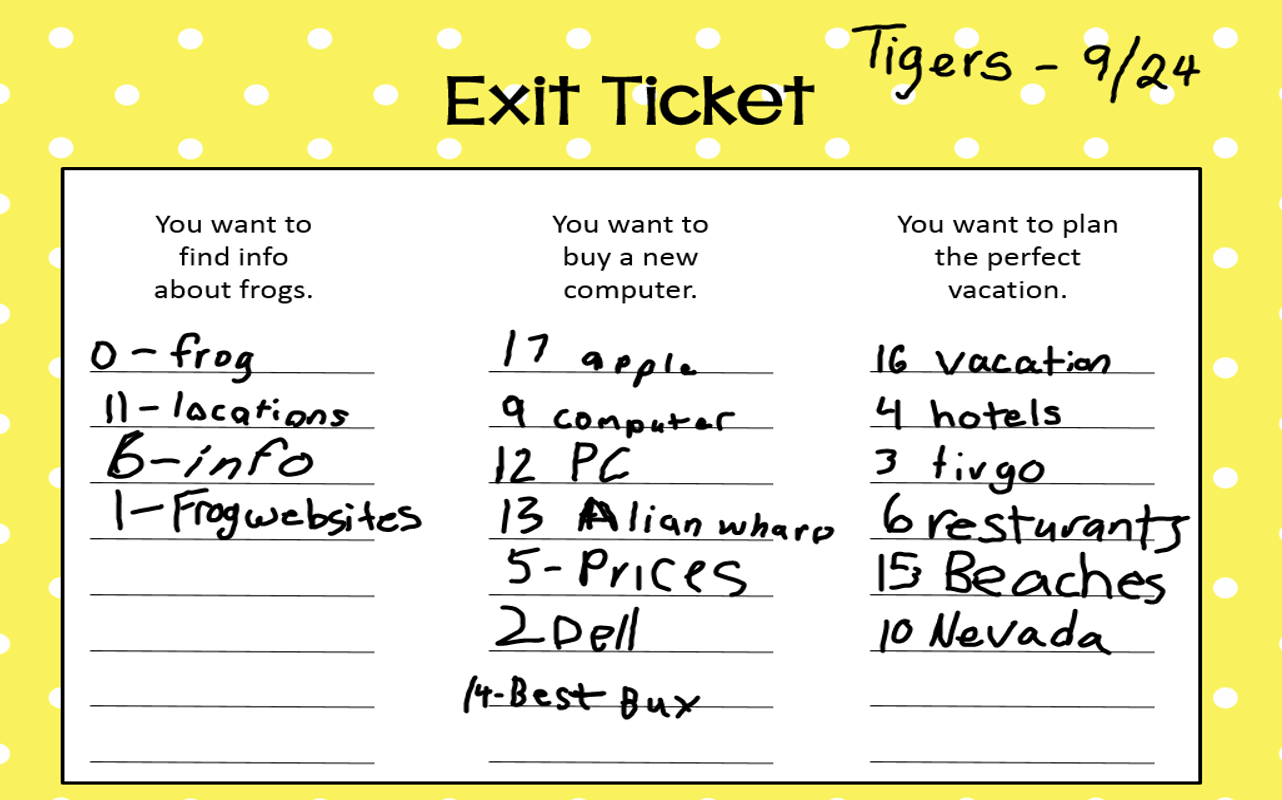 Tigers - 9/24
Exit Ticket
You want to
find info
about frogs.
0 - frog
11 - locations
6 - info
1 - Frogwebsites
You want to
buy a new
computer.
17 apple
9 computer
12 PC
13 Alian wharp
5 - Prices
2 Dell
14 - Best Buy
You want to plan
the perfect
vacation.
16 vacation
4 hotels
3 tivgo
6 resturants
15 Beaches
10 Nevada